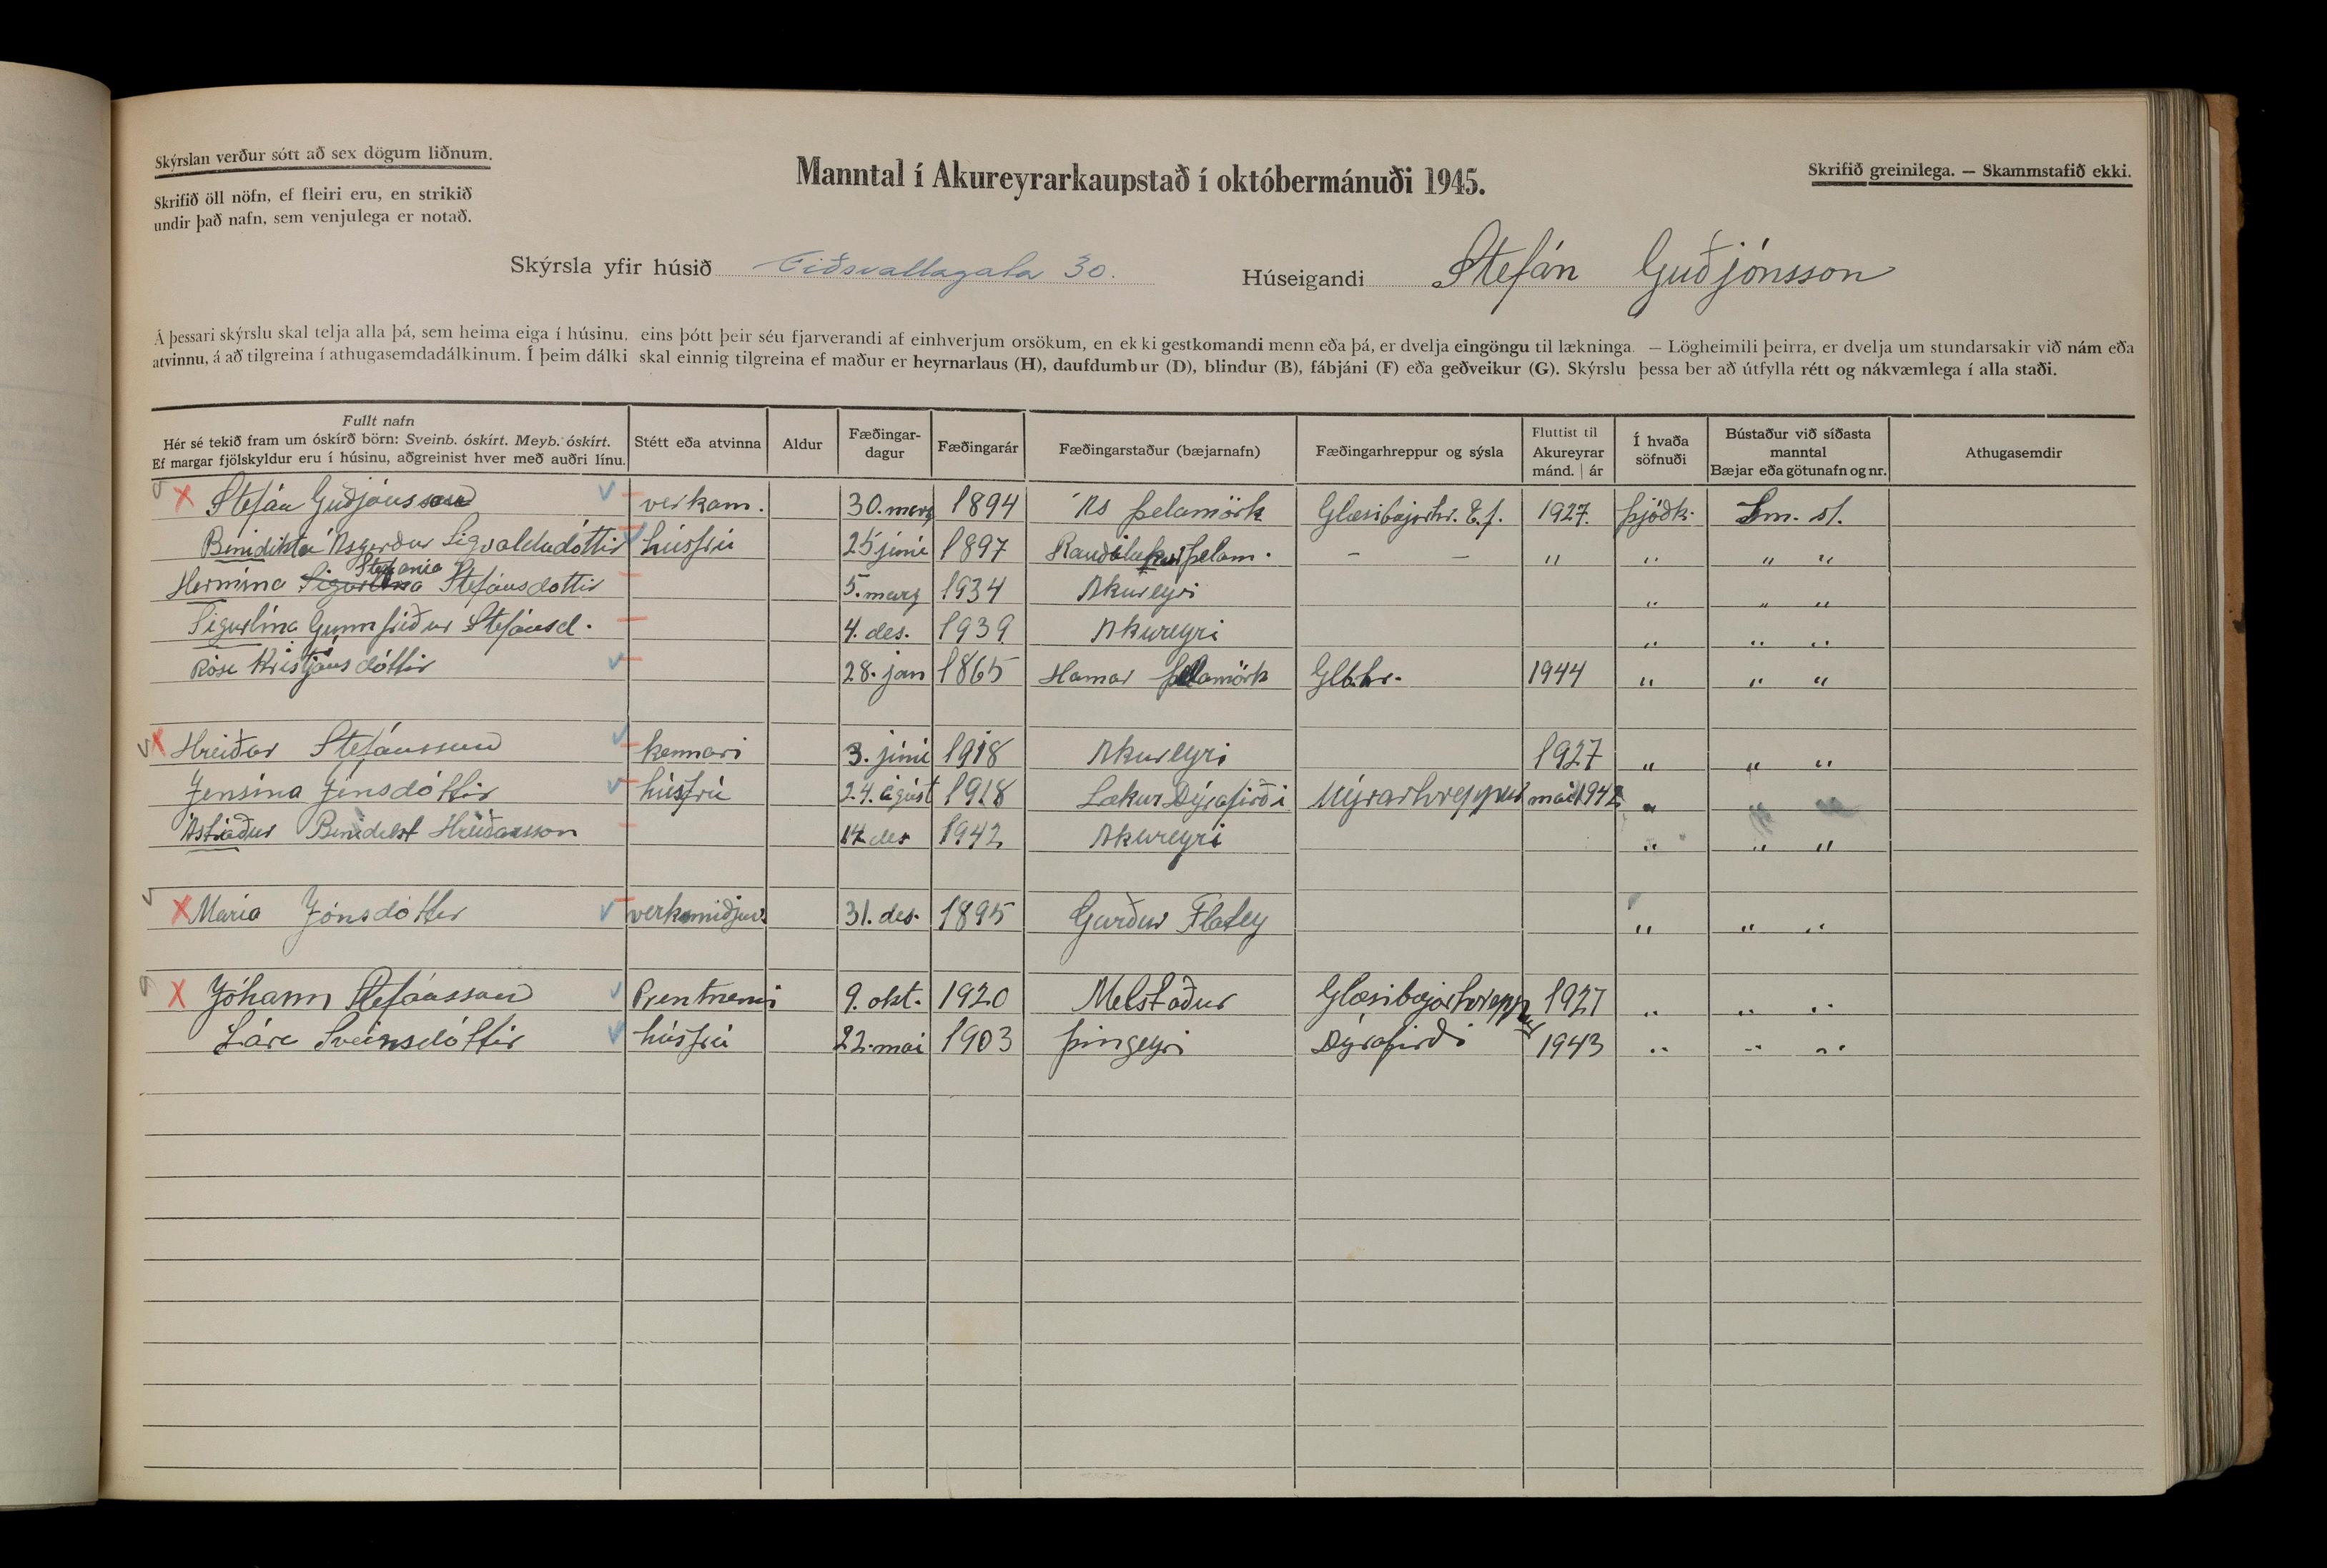 Skýrslan verður sótt að sex dögum liðnum.
Skrifið öll nöfn, ef fleiri eru, en strikið
undir það nafn, sem venjulega er notað.
Manntal í Akureyrarkaupstað í októbermánuði 1945.
Skrifið greinilega. — Skammstafið ekki.
Skýrsla yfir húsið Eiðsvallagata 30.
Húseigandi Stefán Guðjónsson
Á þessari skýrslu skal telja alla þá, sem heima eiga í húsinu, eins þótt þeir séu fjarverandi af einhverjum orsökum, en ekki gestkomandi menn eða þá, er dvelja eingöngu til lækninga. — Lögheimili þeirra, er dvelja um stundarsakir við nám eða
atvinnu, á að tilgreina í athugasemdadálkinum. Í þeim dálki skal einnig tilgreina ef maður er heyrnarlaus (H), daufdumbur (D), blindur (B), fábjáni (F) eða geðveikur (G). Skýrslu þessa ber að útfylla rétt og nákvæmlega í alla staði.
Fullt nafn
Hér sé tekið fram um óskírð börn: Sveinb. óskírt. Meyb. óskírt.
Ef margar fjölskyldur eru í húsinu, aðgreinist hver með auðri línu.
Stétt eða atvinna
Aldur
Fæðingar-
dagur
Fæðingarár
Fæðingarstaður (bæjarnafn)
Fæðingarhreppur og sýsla
Fluttist til
Akureyrar
mánd. | ár
Í hvaða
söfnuði
Bústaður við síðasta
manntal
Bæjar eða götunafn og nr.
Athugasemdir
Stefán Guðjónsson verkam. 30. marz 1894 Ás Þelamörk Glæsibæjarhr. E.f. 1927. Þjóðk. Sm. st.
Benidikta Ásgerður Sigvaldadóttir húsfrú 25 júní 1897 Rauðilækur Þelam. — — " " " "
Stefanía
Hermína Sigurlína Stefánsdóttir 5. marz 1934 Akureyri " " "
Sigurlína Gunnfríður Stefánsd. 4. des. 1939 Akureyri " " "
Rósa Kristjánsdóttir 28. jan 1865 Hamar Þelamörk Glb.hr. 1944 " " "
Hreiðar Stefánsson kennari 3. júní 1918 Akureyri 1927 " " "
Jensína Jensdóttir húsfrú 24. ágúst 1918 Lækur Dýrafirði Mýrarhreppur maí 1942 " " "
Ástráður Benidikt Hreiðarsson 14 des 1942 Akureyri " " "
María Jónsdóttir verksmiðjuv. 31. des. 1895 Garður Flatey " " "
Jóhann Stefánsson Prentnemi 9. okt. 1920 Melstaður Glæsibæjarhreppur 1927 " " "
Lára Sveinsdóttir húsfrú 22. maí 1903 Þingeyri Dýrafirði 1943 " " "